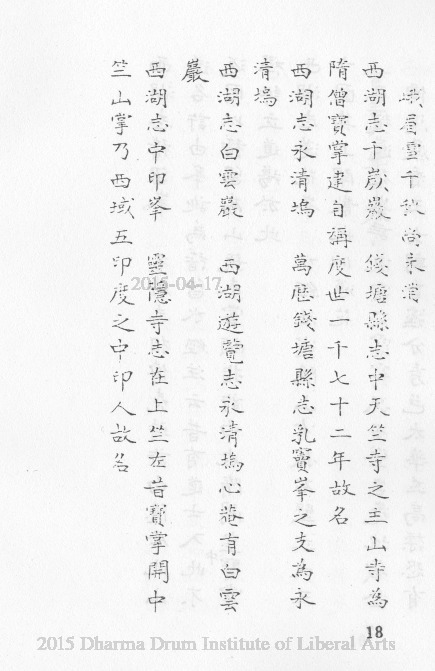 峨眉雪千秋尚未消
西湖志千歲巖　錢塘縣志中天竺寺之主山寺為
隋僧寶掌建自稱度世一千七十二年故名
西湖志永清塢　萬歷錢塘縣志乳竇峯之支為永
清塢
西湖志白雲巖　西湖遊覽志永清塢心菴有白雲
巖
西湖志中印峯　靈隱寺志在上竺左昔寶掌開中
竺山掌乃西域五印度之中印人故名
2015-04-17
18
2015 Dharma Drum Institute of Liberal Arts